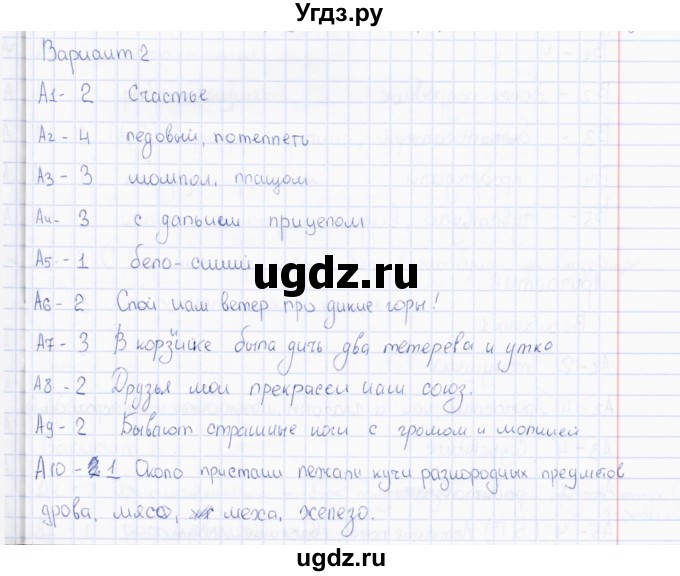 Угдз.ру
Вариант 2
А1 - 2 Счастье
А2 - 4 ледовый, потеплеть
А3 - 3 шомпол, плащом
А4 - 3 с дальним прицелом
А5 - 1 бело-синий
ugdz.ru
А6 - 2 Спой нам ветер про дикие горы!
А7 - 3 В корзинке была дичь два тетерева и утка
А8 - 2 Друзья мои прекрасен наш союз.
А9 - 2 Бывают страшные ночи с громом и молнией
А10 - 1 Около пристани лежали кучи разнородных предметов
дрова, мясо, меха, железо.
ugdz.ru